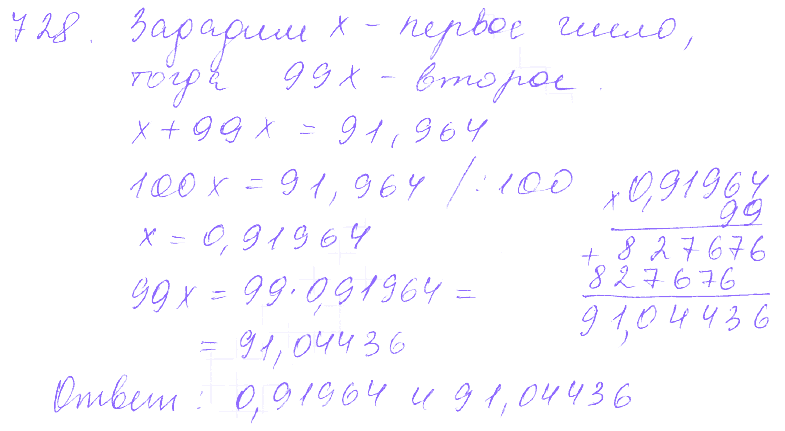 728. Зададим х - первое число,
тогда 99х - второе.
х + 99х = 91,964
100х = 91,964 /:100
х = 0,91964
99х = 99·0,91964 =
= 91,04436
х 0,91964
99
+ 827676
827676
91,04436
Ответ: 0,91964 и 91,04436